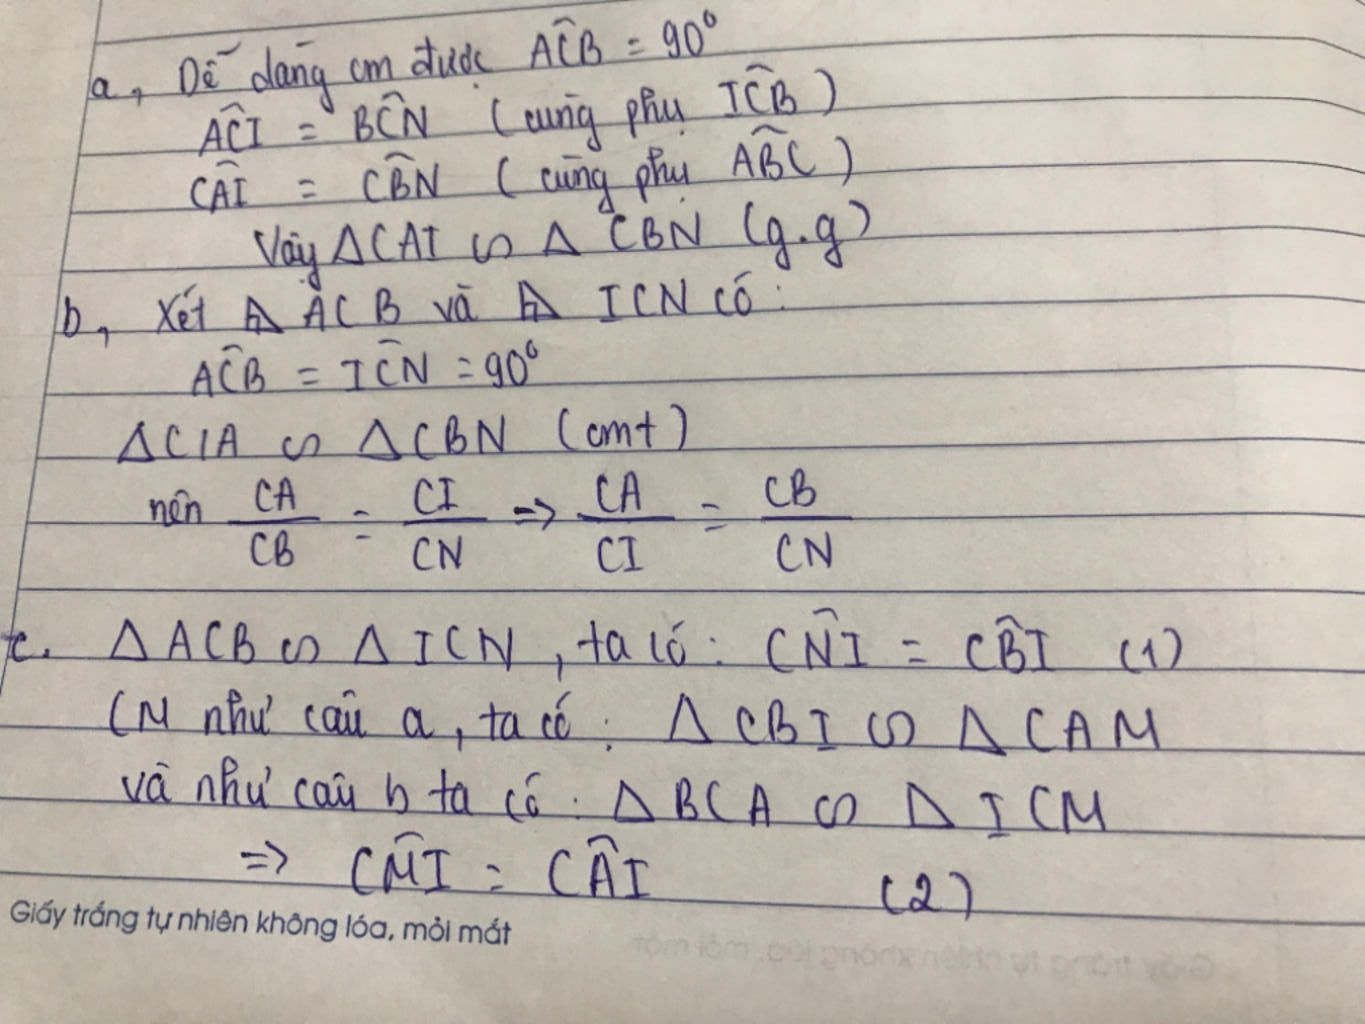 a, Dễ dàng cm được AĈB = 90°
AĈI = BĈN (cùng phụ IĈB)
CÂI = CB̂N (cùng phụ AB̂C)
Vậy ΔCAI ∽ Δ CBN (g.g)
b, Xét Δ ACB và Δ ICN có:
AĈB = IĈN = 90°
ΔCIA ∽ ΔCBN (cmt)
nên CA/CB = CI/CN => CA/CI = CB/CN
c. ΔACB ∽ ΔICN, ta có: CN̂I = CB̂I (1)
CM như câu a, ta có: ΔCBI ∽ ΔCAM
và như câu b ta có: ΔBCA ∽ ΔICM
=> CM̂I = CÂI (2)
Giấy trắng tự nhiên không lóa, mỏi mắt